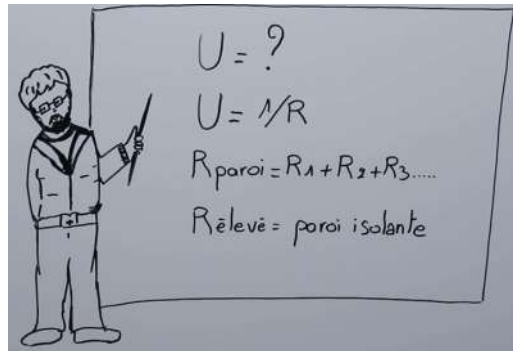 U = ?
U = 1/R
R paroi = R1 + R2 + R3.....
R élevé = paroi isolante